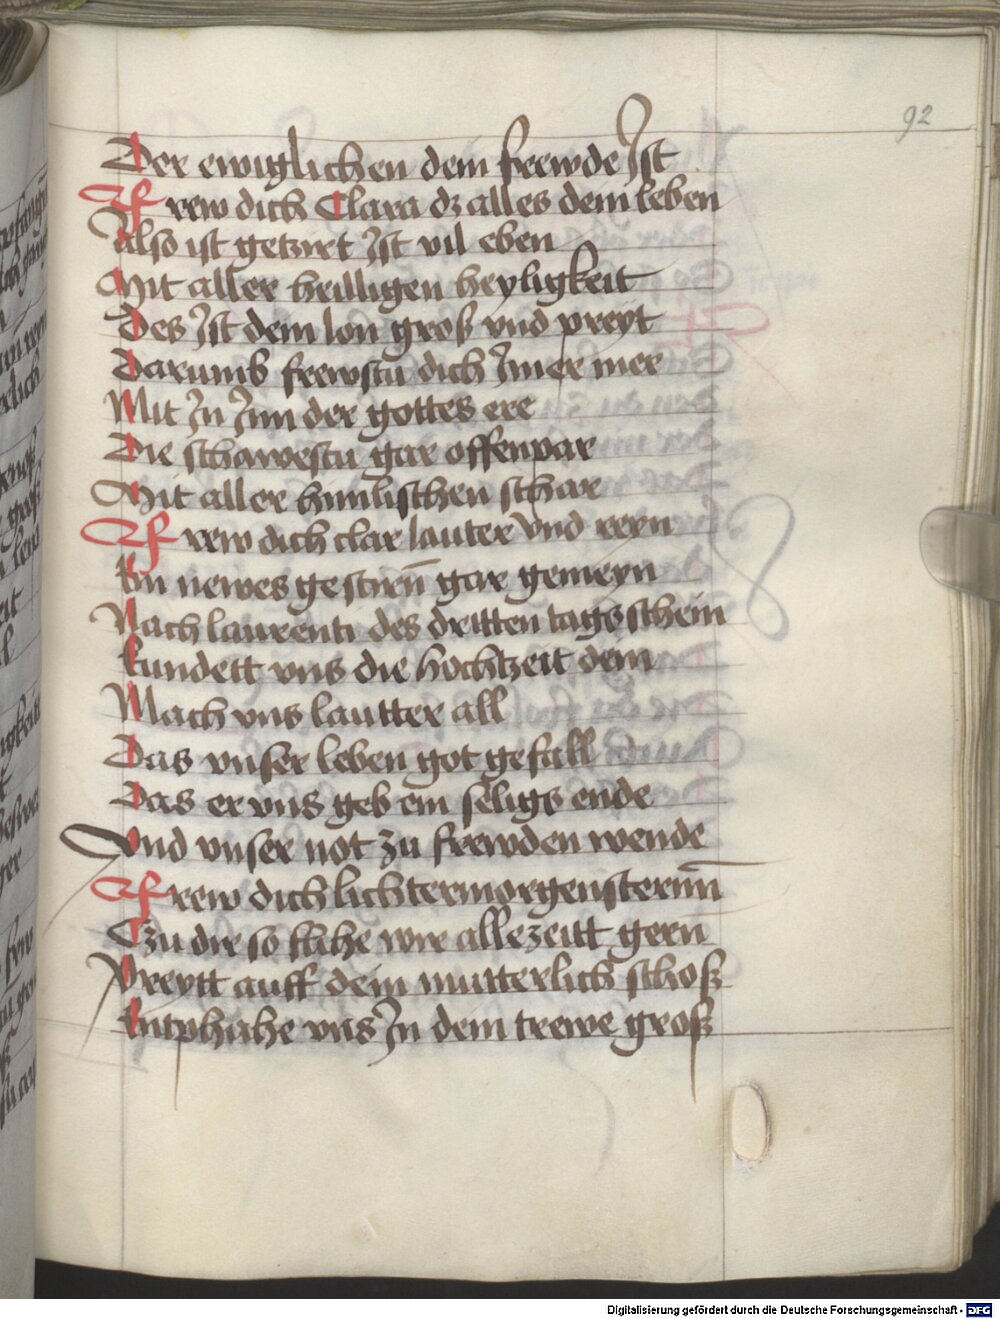 92
Der ewiglichen dein frewde Ist
Frew dich Clara dz alles dein leben
Also ist getziret Ist vil eben
Mit aller heilligen heyligkeit
Des Ist dein lon groß vnd preyt
Darumb frewstu dich Imer mer
Mit In Inn der gottes ere
Die schawestu gar offenpar
Mit aller himlischen schar
Frew dich clar lauter vnd reyn
Ein newes gestirn̄ gar gemeyn
Nach laurenti des dritten tags schein
kundett vns die hochtzeit dein
Mach vns lautter all
Das vnser leben got gefall
Das er vns geb ein seligs ende
Vnd vnser not zu frewden wende
Frew dich lichter morgensternn̄
Tzu dir so flihe wir alle zeitt gern
Preytt auff dein mutterlich schoß
Entphahe vns In dein trewe groß
Digitalisierung gefördert durch die Deutsche Forschungsgemeinschaft - DFG